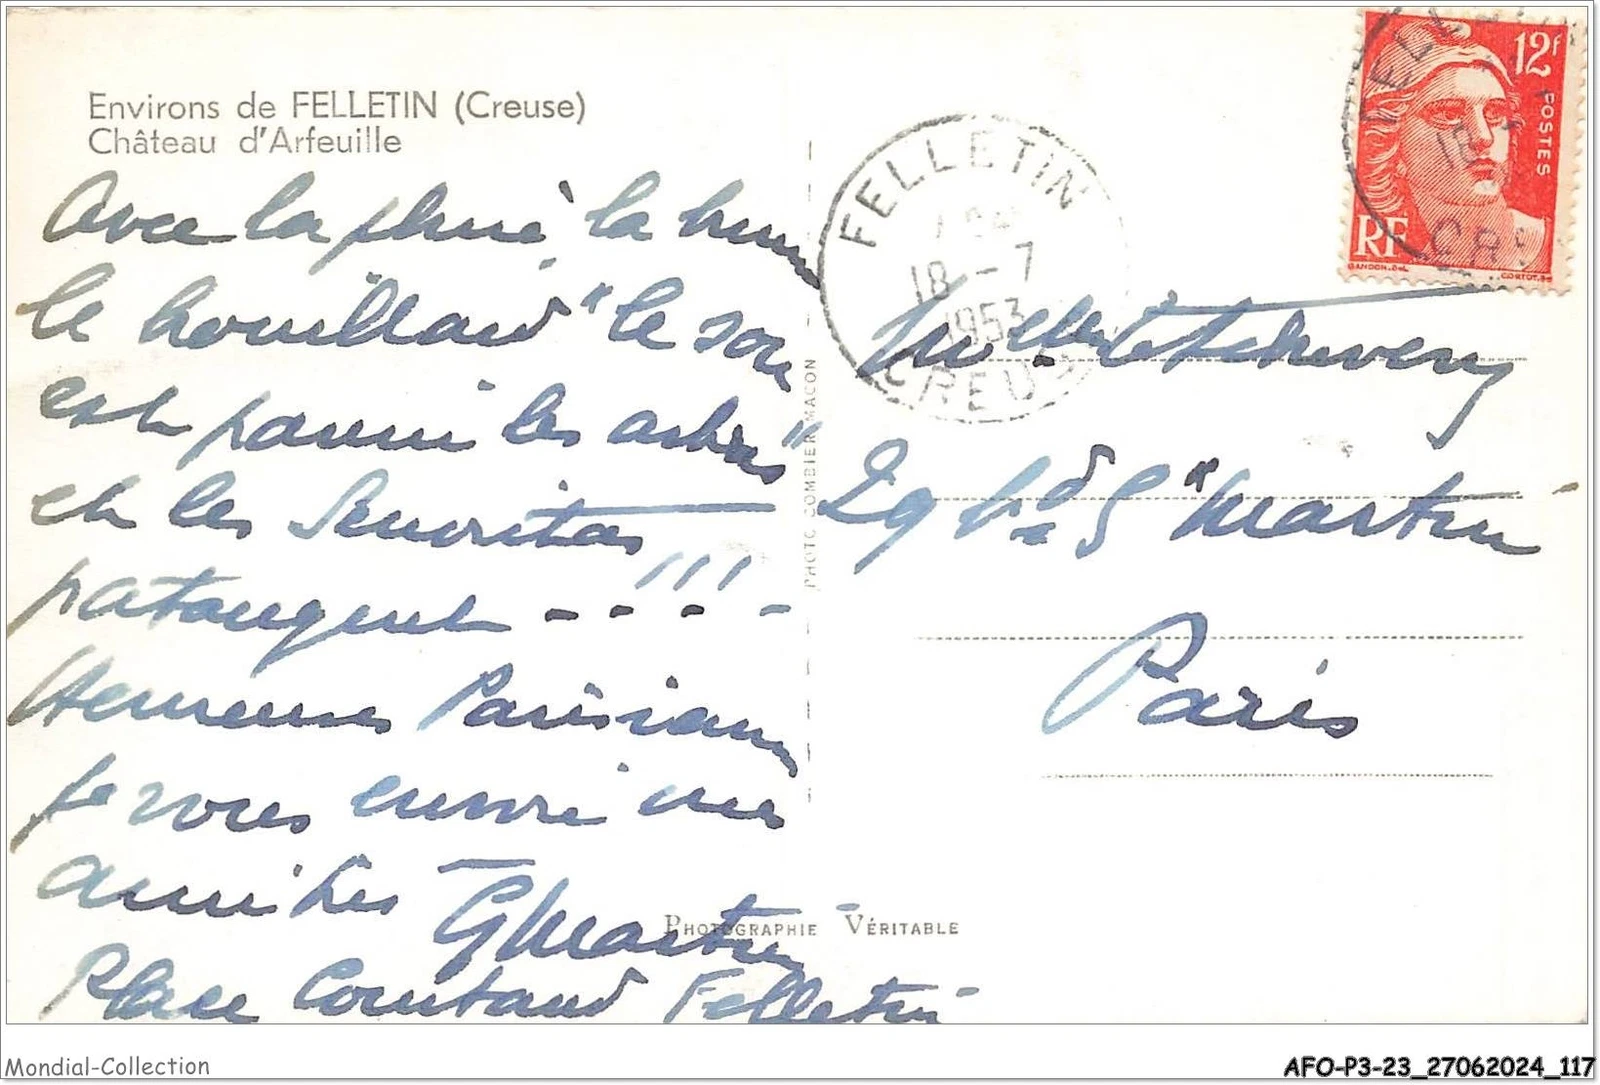 Environs de FELLETIN (Creuse)
Château d'Arfeuille
Avec la pluie la brume
le brouillard "le soir
est parmi les arbres"
et les Senoritas
pataugent - - - - !!!
Heureuses Parisiennes
je vous envoie mes
amitiés
GMartin
Place Courtaud Felletin
PHOTO COMBIER MACON
PHOTOGRAPHIE VÉRITABLE
FELLETIN
18 - 7
1953
CREUSE
12f
POSTES
RF
GANDON.DEL
CORTOT.SC
FELLE
18
CRE
Etcheverry
29 Bd St Martin
Paris
Mondial-Collection
AFO-P3-23_27062024_117